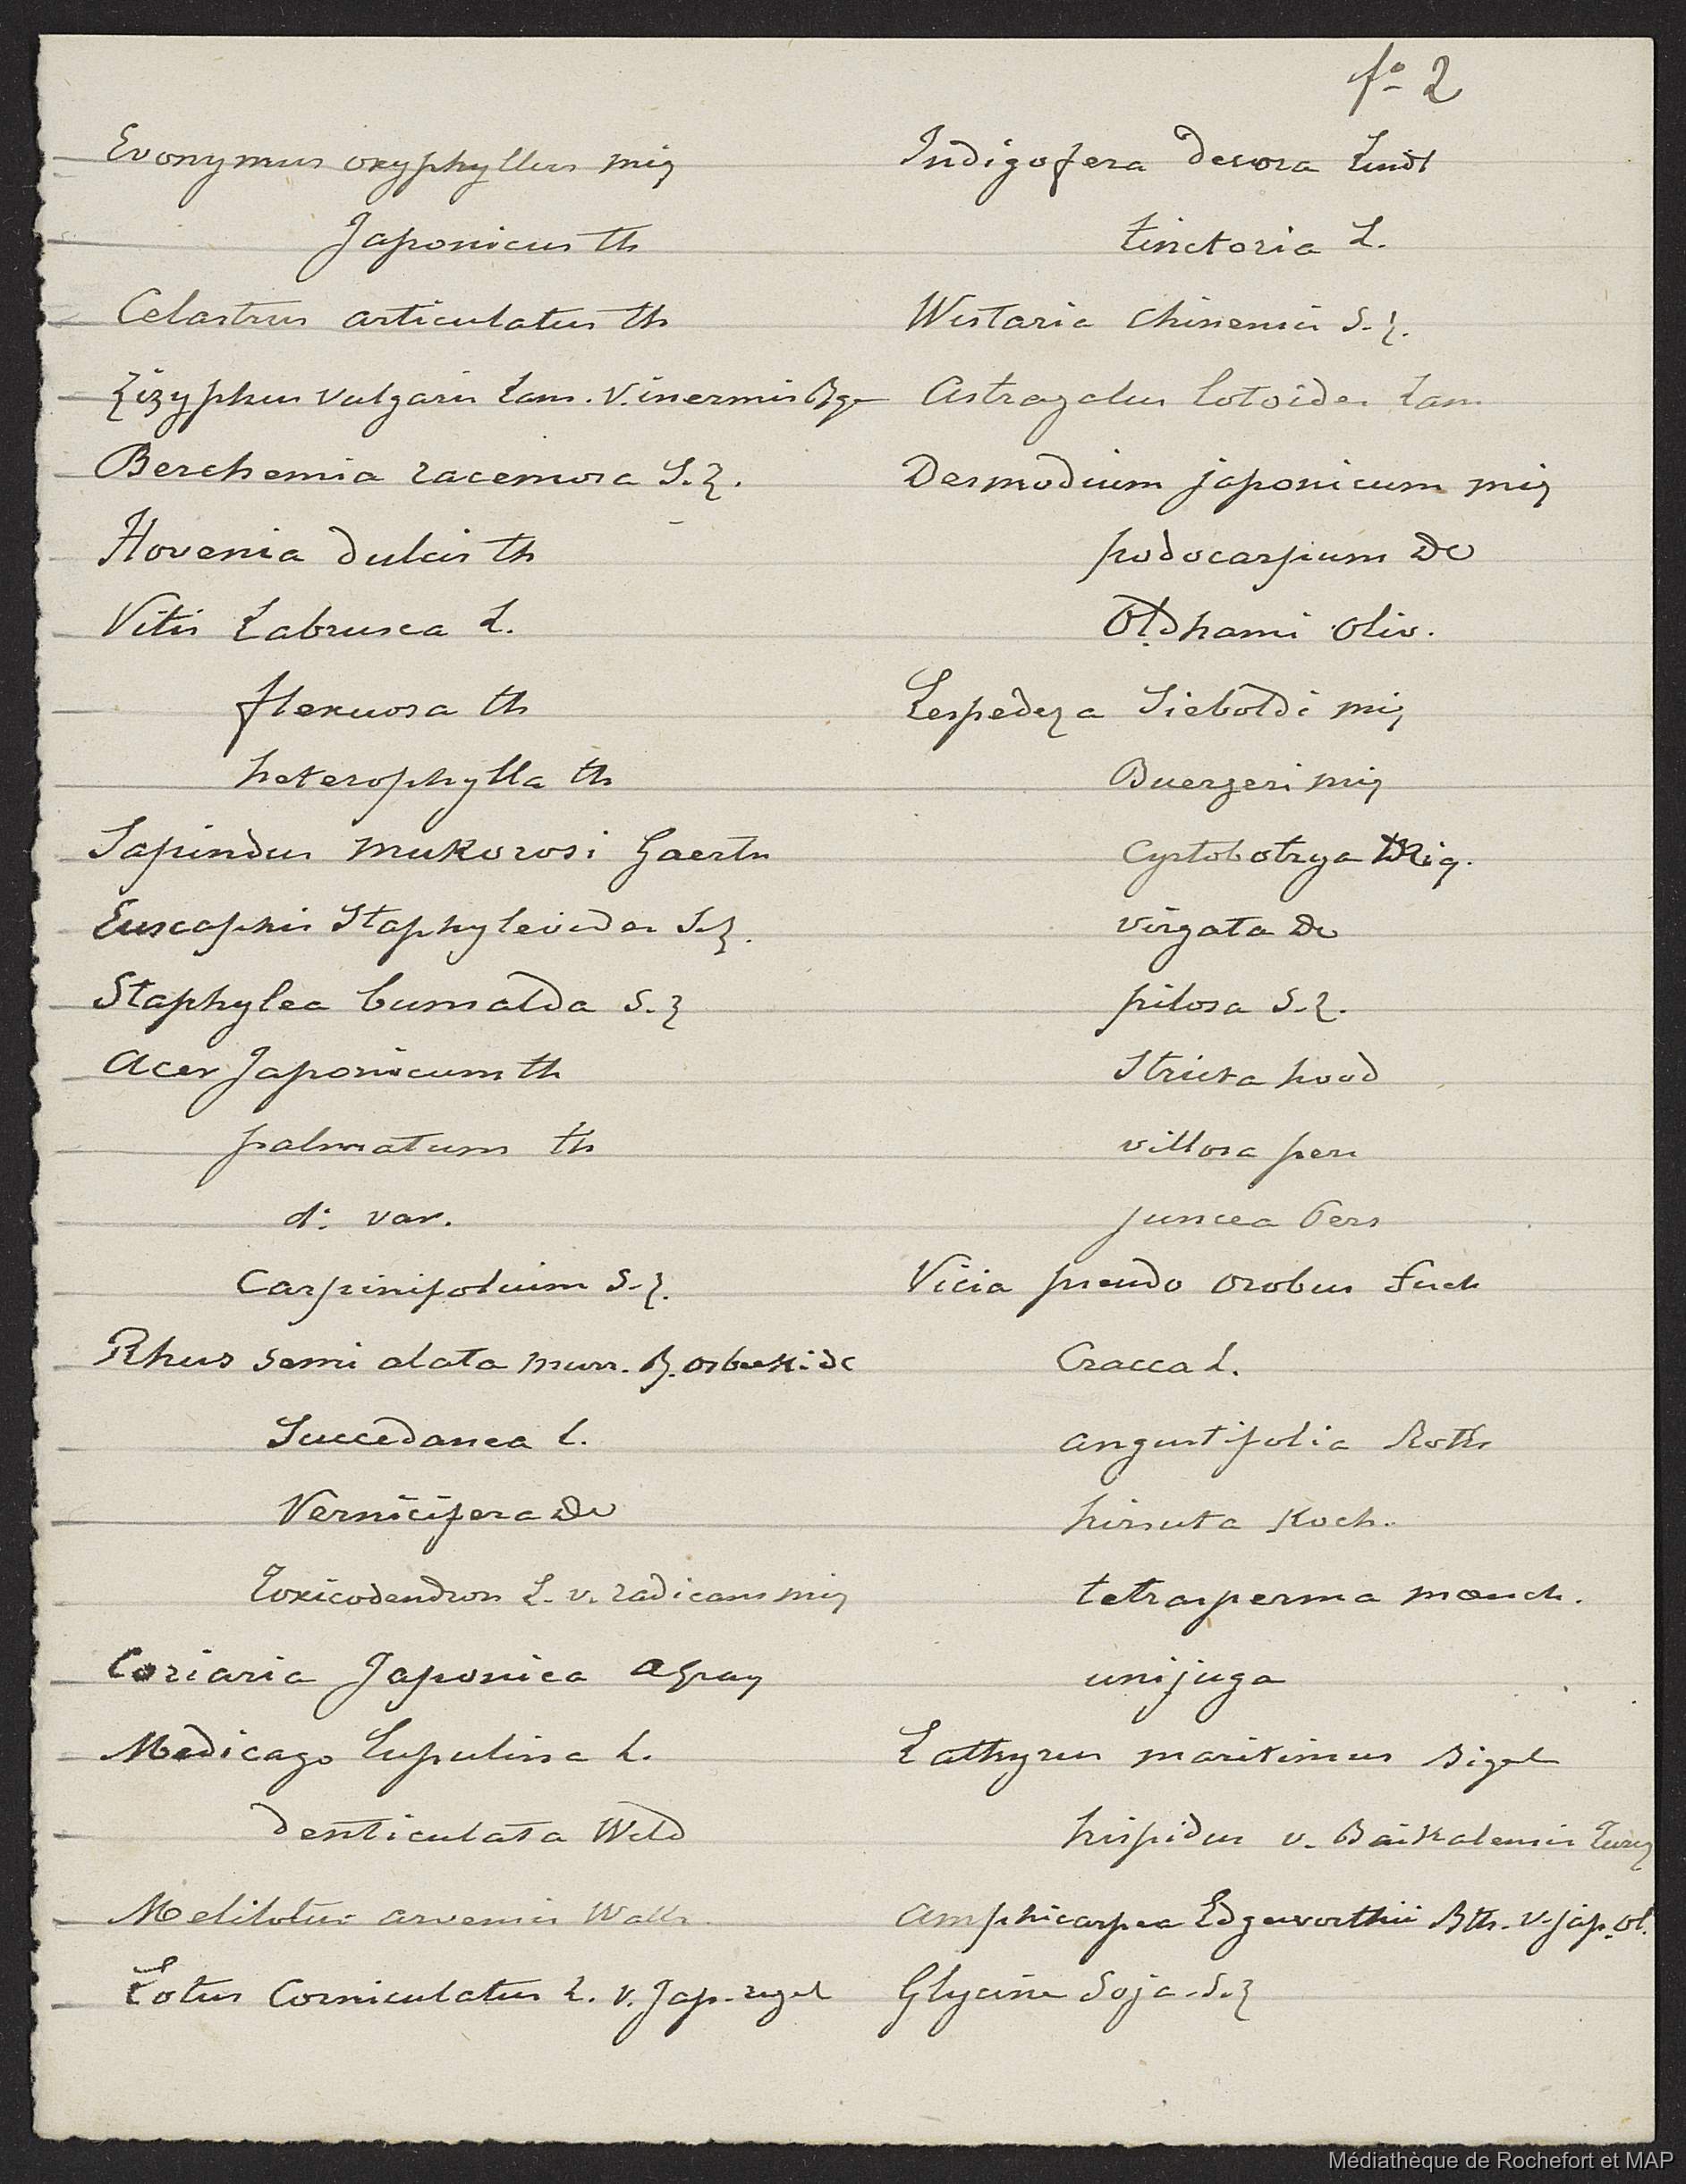 fo 2
Evonymus oxyphyllus miq
Japonicus th
Celastrus articulatus th
Zizyphus vulgaris Lam. V. inermis Bge
Berchemia racemosa S.Z.
Hovenia dulcis th
Vitis Labrusca L.
flexuosa th
heterophylla th
Sapindus mukorosi Gaertn
Euscaphis Staphyleoides S.Z.
Staphylea bumalda S.Z
Acer Japonicum th
palmatum th
do var.
Carpinifolium S.Z.
Rhus semi alata murr. B. osbeckii DC
Succedanea L.
Vernicifera DC
Toxicodendron L. v. radicans miq
Coriaria Japonica A Gray
Medicago lupulina L.
denticulata Wild
Melilotus arvensis Wallr.
Lotus Corniculatus L. v. Jap. regel
Indigofera decora Lindl
tinctoria L.
Wistaria chinensis S.Z.
Astragalus lotoides Lam
Desmodium japonicum miq
podocarpium DC
Oldhami Oliv.
Lespedeza Sieboldi miq
Buergeri miq
Cyrtobotrya Miq.
virgata DC
pilosa S.Z.
Stricta hood
villosa pers
juncea Pers
Vicia pseudo orobus Fisch
Cracca L.
angustifolia Roth
hirsuta Koch.
tetrasperma mœnch.
unijuga
Lathyrus maritimus Bigel
hispidus v. Baikalensis Turcz
Amphicarpea Edgeworthii Bth. v. jap. ol.
Glycine Soja S.Z
Médiathèque de Rochefort et MAP